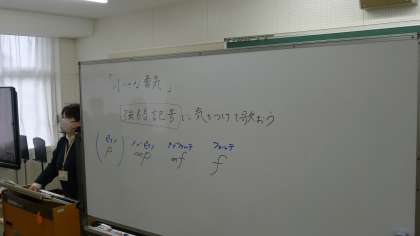 「小さな勇気」
強弱記号に気をつけて歌おう
ピアノ メゾピアノ メゾフォルテ フォルテ
(p) mp mf f